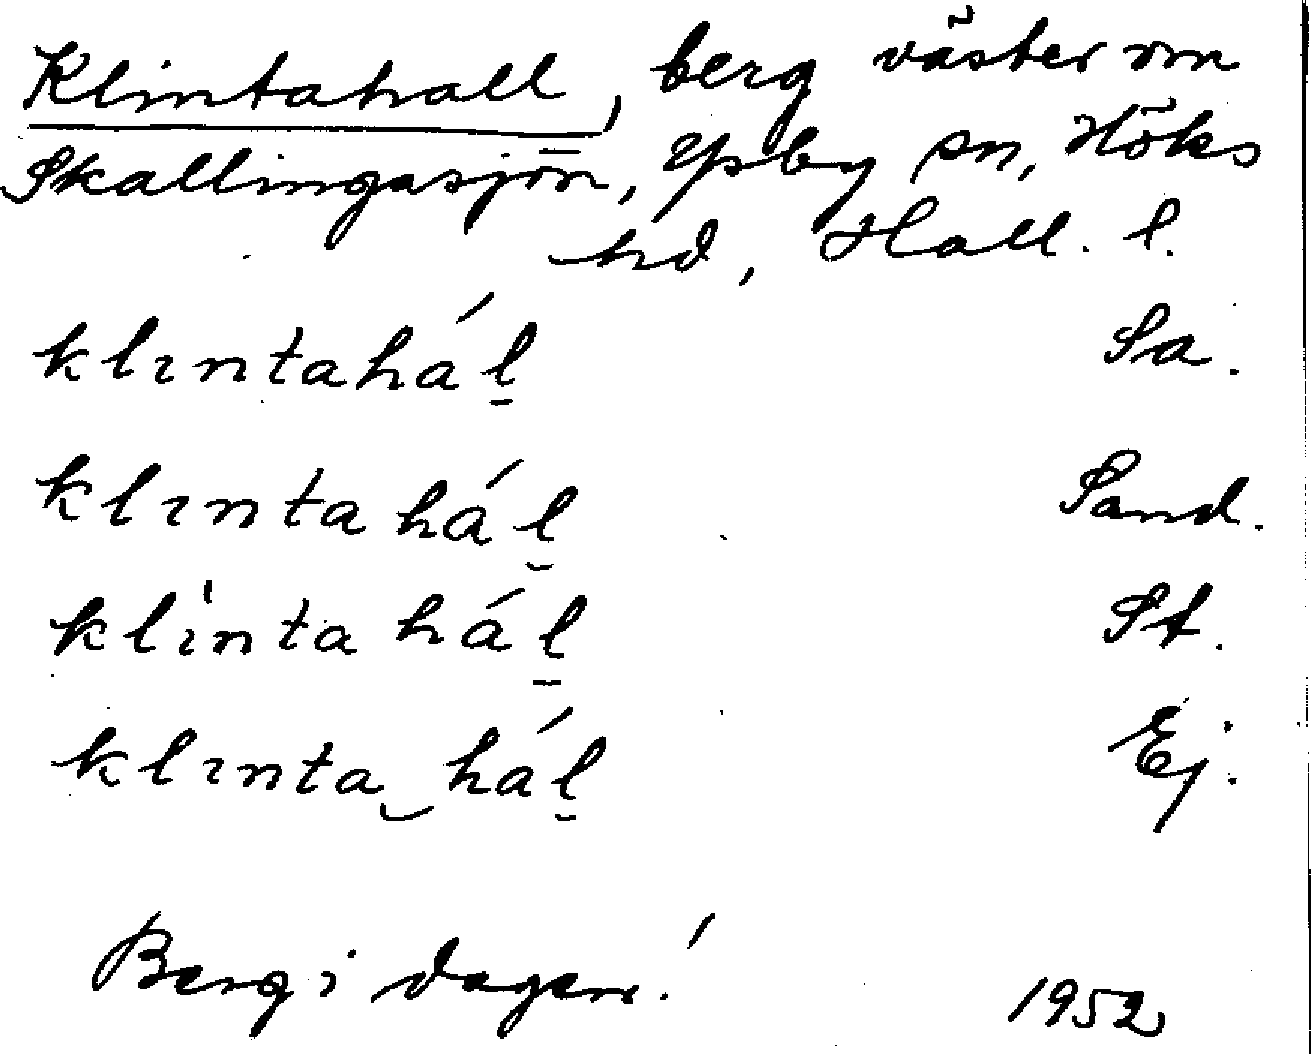 Klintahall, berg väster om
Skallingasjön, Ysby sn, Höks
hd, Hall. l.
klıntahál̠ Sa.
klınta hál̠ Sand.
klı̍nta hál̠ St.
klınta‿hál̠ Ej.
Berg i dagen! 1952